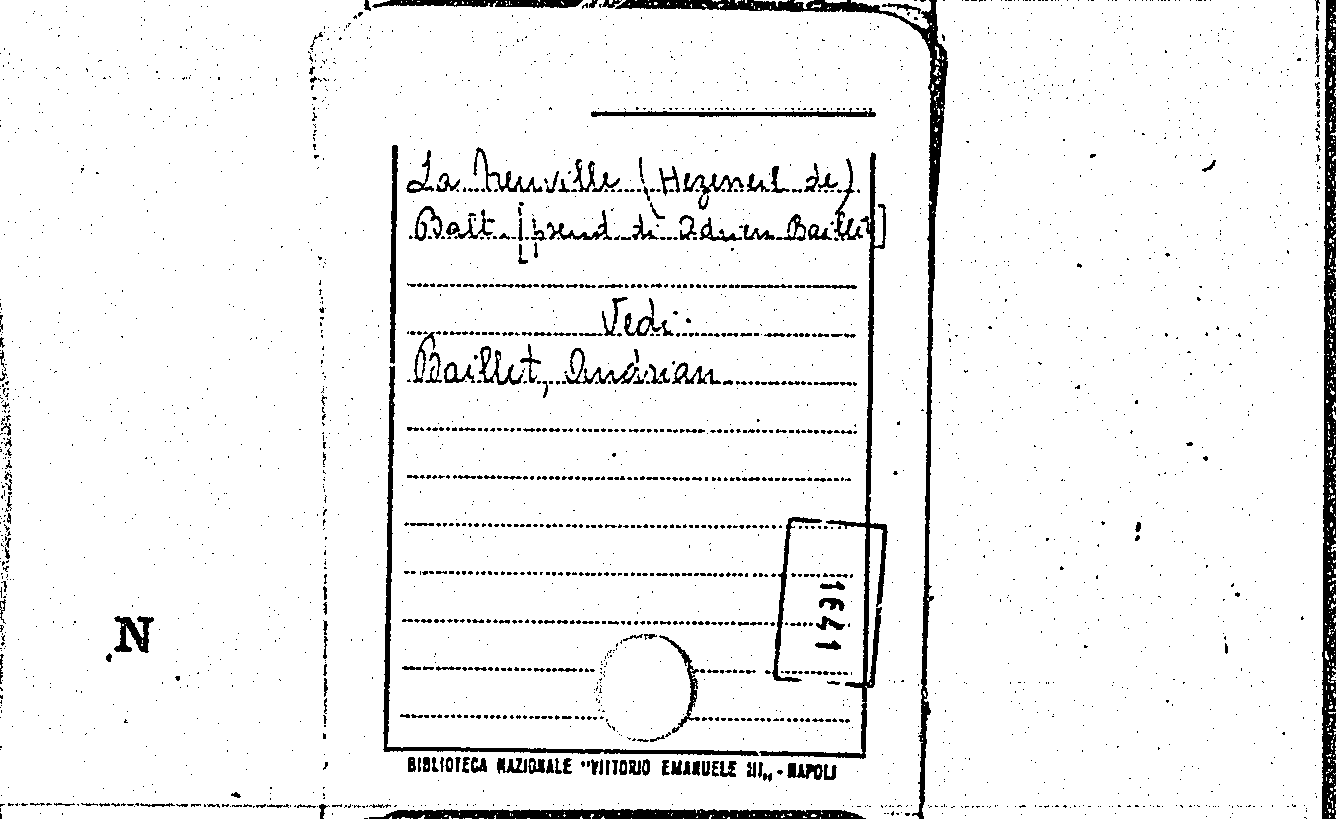 La Neuville (Hezeneil de)
Balt. [pseud di Adrien Baillet]
Vedi:
Baillet, Andrian
1641
N
BIBLIOTECA NAZIONALE "VITTORIO EMANUELE III„ - NAPOLI